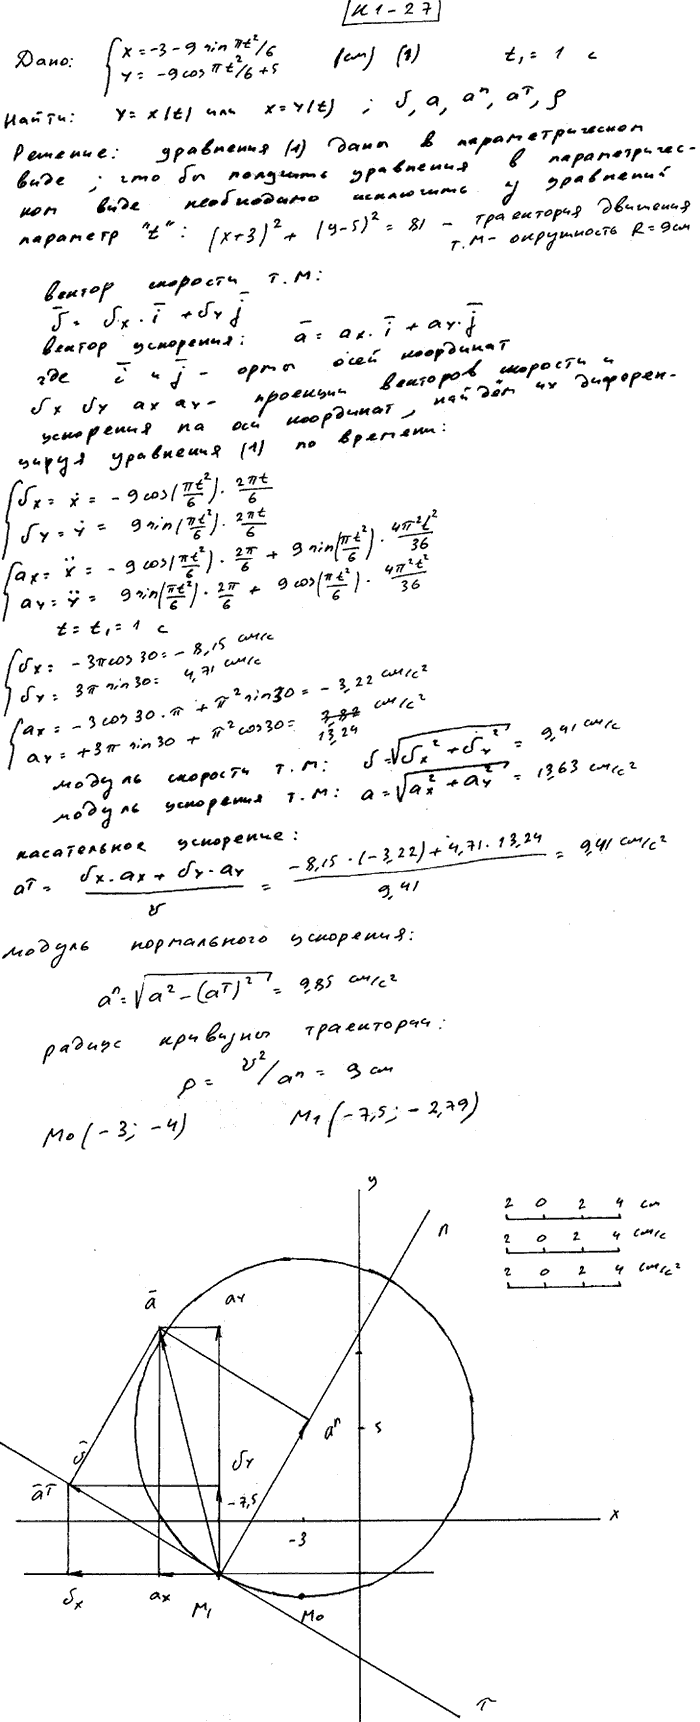 К1-27
Дано: { x = -3 - 9 sin πt²/6
y = -9 cos πt²/6 + 5 (см) (1) t₁ = 1 с
Найти: y = x(t) или x = y(t) ; υ, a, aⁿ, aᵀ, ρ
Решение: уравнения (1) даны в параметрическом
виде ; что бы получить уравнения в параметричес-
ком виде необходимо исключить у уравнений
параметр "t" : (x+3)² + (y-5)² = 81 - траектория движения
т.М - окружность R = 9 см
вектор скорости т.М:
ῡ = υx · i̅ + υy j̅
вектор ускорения: a̅ = ax · i̅ + ay · j̅
где i̅ и j̅ - орты осей координат
υx υy ax ay - проекции векторов скорости и
ускорения на оси координат, найдём их диферен-
цируя уравнения (1) по времени:
{ υx = ẋ = -9 cos(πt²/6) · 2πt/6
υy = ẏ = 9 sin(πt²/6) · 2πt/6
{ ax = ẍ = -9 cos(πt²/6) · 2π/6 + 9 sin(πt²/6) · 4π²t²/36
ay = ÿ = 9 sin(πt²/6) · 2π/6 + 9 cos(πt²/6) · 4π²t²/36
t = t₁ = 1 с
{ υx = -3π cos 30 = -8,15 см/с
υy = 3π sin 30 = 4,71 см/с
{ ax = -3 cos 30 · π + π² sin 30 = -3,22 см/с²
ay = +3π sin 30 + π² cos 30 = 13,24 см/с²
модуль скорости т.М: υ = √(υx² + υy²) = 9,41 см/с
модуль ускорения т.М: a = √(ax² + ay²) = 13,63 см/с²
касательное ускорение:
aᵀ = (υx · ax + υy · ay)/υ = (-8,15 · (-3,22) + 4,71 · 13,24)/9,41 = 9,41 см/с²
модуль нормального ускорения:
aⁿ = √(a² - (aᵀ)²) = 9,85 см/с²
радиус кривизны траектории:
ρ = υ²/aⁿ = 9 см
M₀ (-3; -4) M₁ (-7,5; -2,79)
y
2 0 2 4 см
n
2 0 2 4 см/с
2 0 2 4 см/с²
a̅ ay
aⁿ 5
ῡ υy
a̅ᵀ -7,5
x
-3
υx ax M₁ M₀
τ